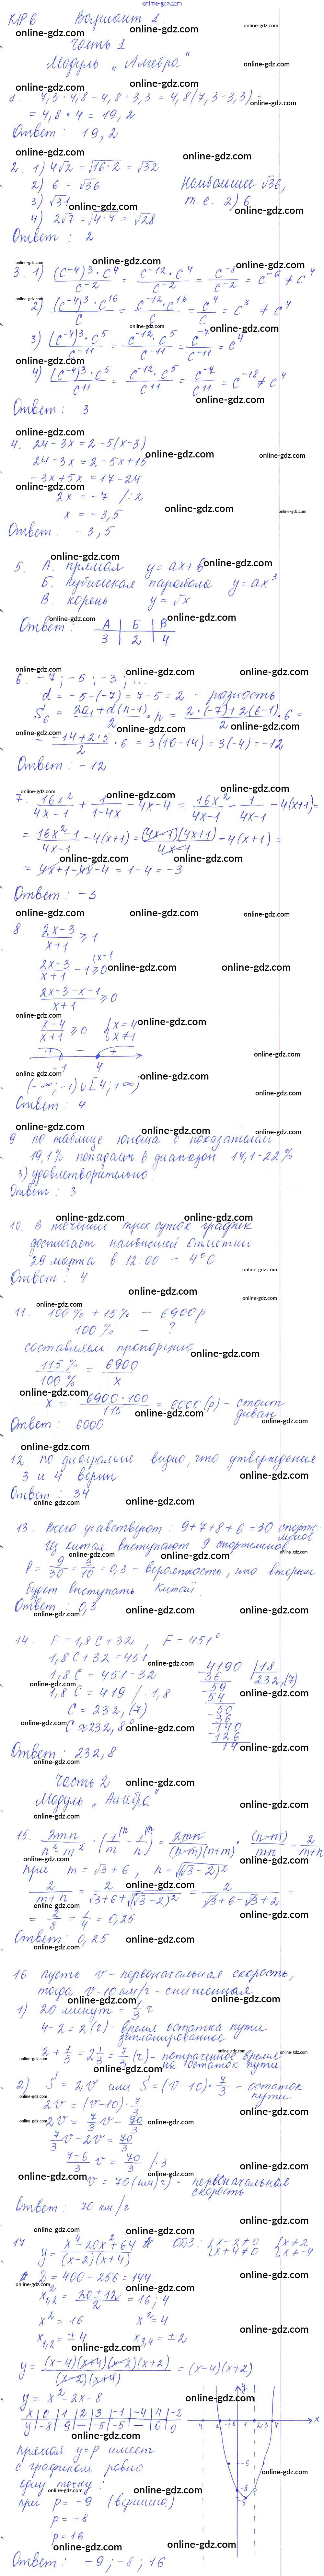 onlinе-gdz.com
К/Р 6 Вариант 1
Часть 1
Модуль „Алгебра"
1. 4,3·4,8 - 4,8·3,3 = 4,8(7,3-3,3) =
= 4,8·4 = 19,2
Ответ: 19,2
2. 1) 4√2 = √(16·2) = √32
2) 6 = √36 Наибольшее √36,
3) √31 т.е. 2) 6
4) 2√7 = √(4·7) = √28
Ответ: 2
3. 1) (c⁻⁴)³·c⁴ / c⁻² = c⁻¹²·c⁴ / c⁻² = c⁻⁸ / c⁻² = c⁻⁶ ≠ c⁴
2) (c⁻⁴)³·c¹⁶ / c = c⁻¹²·c¹⁶ / c = c⁴ / c = c³ ≠ c⁴
3) (c⁻⁴)³·c⁵ / c⁻¹¹ = c⁻¹²·c⁵ / c⁻¹¹ = c⁻⁷ / c⁻¹¹ = c⁴
4) (c⁻⁴)³·c⁵ / c¹¹ = c⁻¹²·c⁵ / c¹¹ = c⁻⁷ / c¹¹ = c⁻¹⁸ ≠ c⁴
Ответ: 3
4. 24-3x = 2-5(x-3)
24-3x = 2-5x+15
-3x+5x = 17-24
2x = -7 /:2
x = -3,5
Ответ: -3,5
5. А. прямая y = ax+b
Б. Кубическая парабола y = ax³
В. корень y = √x
Ответ: А | Б | В
3 | 2 | 4
6. -7; -5; -3; ...
d = -5-(-7) = 7-5 = 2 - разность
S₆ = (2a₁+d(n-1))/2 · n = (2·(-7)+2(6-1))/2 · 6 =
= (-14+2·5)/2 · 6 = 3(10-14) = 3(-4) = -12
Ответ: -12
7. 16x²/(4x-1) + 1/(1-4x) - 4x-4 = 16x²/(4x-1) - 1/(4x-1) - 4(x+1) =
= (16x²-1)/(4x-1) - 4(x+1) = (4x-1)(4x+1)/(4x-1) - 4(x+1) =
= 4x+1-4x-4 = 1-4 = -3
Ответ: -3
8. (2x-3)/(x+1) ≥ 1
(2x-3)/(x+1) - 1 ≥ 0
(2x-3-x-1)/(x+1) ≥ 0
(x-4)/(x+1) ≥ 0 {x=4 x≠1
+ - +
-1 4
(-∞; -1) ∪ [4; +∞)
Ответ: 4
9 по таблице юноша с показателем
19,1% попадает в диапазон 17,1-22%
3) удовлетворительно
Ответ: 3
10. В течении трех суток график
достигает наивысшей отметки
29 марта в 12.00 - 4°С
Ответ: 4
11. 100% + 15% — 6900 р.
100% — ?
составляем пропорцию
115% / 100% = 6900 / x
x = 6900·100 / 115 = 6000 (р) - стоит
диван
Ответ: 6000
12. по диаграмме видно, что утверждения
3 и 4 верны
Ответ: 34
13. Всего участвуют: 9+7+8+6 = 30 спортс
менов
Из Китая выступают 9 спортсменов
P = 9/30 = 3/10 = 0,3 - вероятность, что вторым
будет выступать Китай.
Ответ: 0,3
14. F = 1,8C+32, F = 451°
1,8C+32 = 451
1,8C = 451-32
1,8C = 419 /:1,8
C = 232,(7)
C ≈ 232,8°
4190 | 18
-36 232,(7)
59
54
50
-36
140
-126
14
Ответ: 232,8
Часть 2
Модуль „Алгебра"
15. 2mn/(n²-m²) · (1/m - 1/n) = 2mn/((n-m)(n+m)) · (n-m)/mn = 2/(m+n)
при m = √3+6, n = √(√3-2)²
2/(m+n) = 2/(√3+6+√(√3-2)²) = 2/(√3+6-√3+2) =
= 2/8 = 1/4 = 0,25
Ответ: 0,25
16 пусть v - первоначальная скорость,
тогда v-10 км/ч - сниженная
1) 20 минут = 1/3 ч
4-2 = 2 (ч) - время остатка пути
запланированное
2+1/3 = 2 1/3 = 7/3 (ч) - потраченное время
на остаток пути
2) S = 2v или S = (v-10)·7/3 - остаток
пути
2v = (v-10)·7/3
2v = 7/3 v - 70/3
7/3 v - 2v = 70/3
(7-6)/3 v = 70/3 /·3
v = 70 (км/ч) - первоначальная
скорость
Ответ: 70 км/ч
17. y = (x⁴-20x²+64)/((x-2)(x+4)) ОДЗ: {x-2≠0 x+4≠0 {x≠2 x≠-4
D = 400-256 = 144
x²₁,₂ = (20±12)/2 = 16; 4
x² = 16 x² = 4
x₁,₂ = ±4 x₃,₄ = ±2
y = (x-4)(x+4)(x-2)(x+2)/((x-2)(x+4)) = (x-4)(x+2)
y = x²-2x-8
x | 0 | 1 | 2 | 3 | -1 | -4 | 4 | -2
y | -8 | -9 | — | -5 | -5 | — | 0 | 0
прямая y=p имеет
с графиком ровно
одну точку:
при p = -9 (вершина)
p = -8
p = 16
Ответ: -9; -8; 16